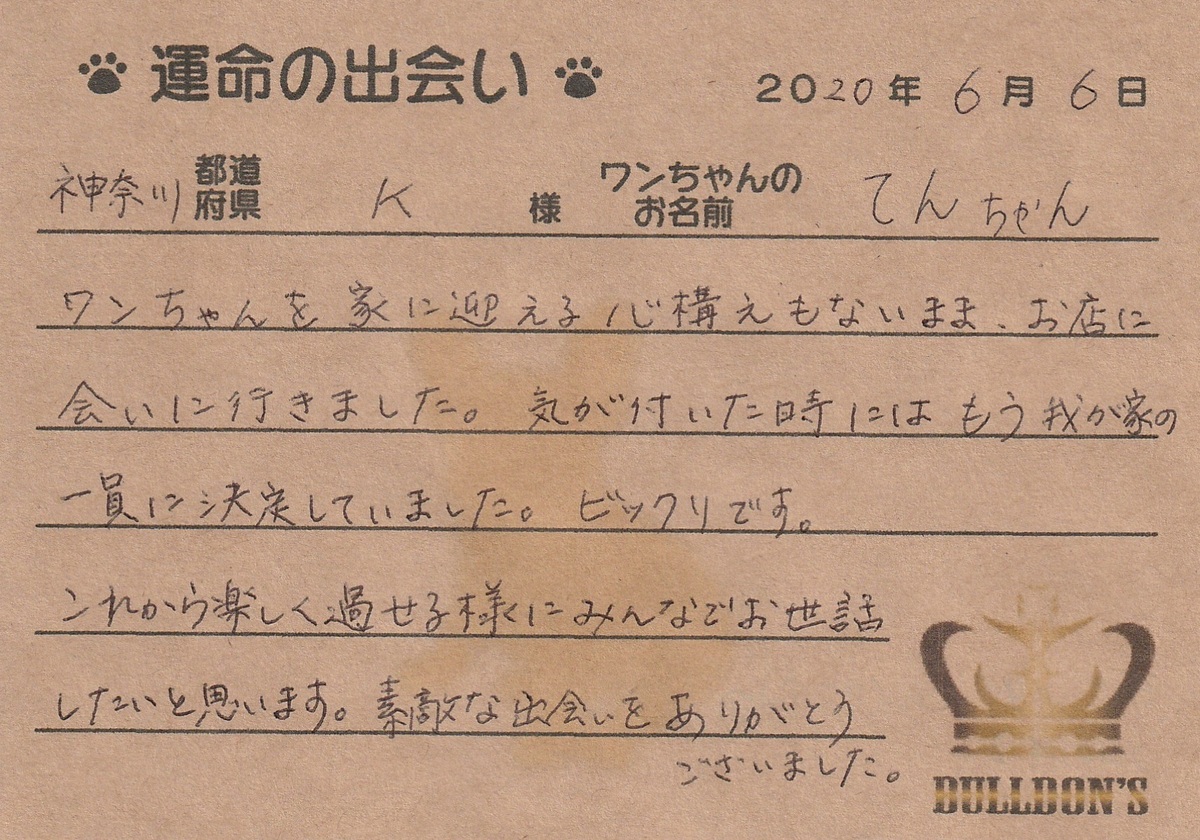 運命の出会い
2020年 6月 6日
神奈川 都道府県 K 様 ワンちゃんのお名前 てんちゃん
ワンちゃんを家に迎える心構えもないまま、お店に
会いに行きました。気が付いた時にはもう我が家の
一員に決定していました。ビックリです。
これから楽しく過せる様にみんなでお世話
したいと思います。素敵な出会いをありがとう
ございました。
BULLDON'S